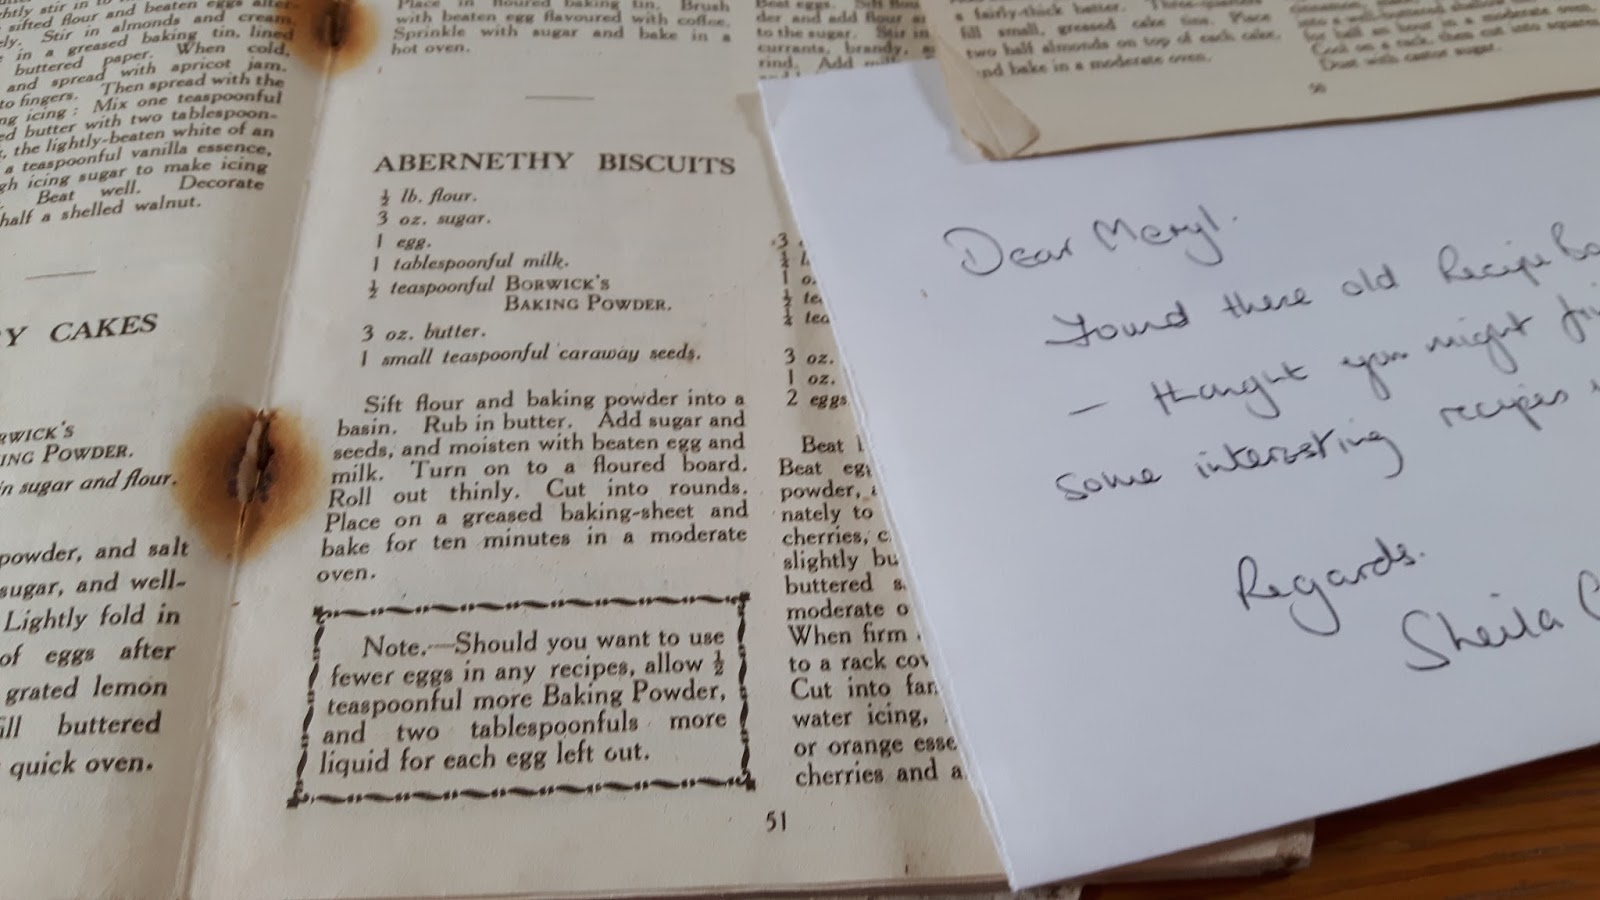 htly stir in
sifted flour and beaten eggs alter-
ely. Stir in almonds and cream.
in a greased baking tin, lined
buttered paper. When cold,
and spread with apricot jam.
to fingers. Then spread with the
ng icing: Mix one teaspoonful
ed butter with two tablespoon-
, the lightly-beaten white of an
a teaspoonful vanilla essence,
gh icing sugar to make icing
Beat well. Decorate
half a shelled walnut.
Y CAKES
RWICK'S
ING POWDER.
in sugar and flour.
powder, and salt
sugar, and well-
Lightly fold in
of eggs after
grated lemon
ill buttered
quick oven.
Place in floured baking tin. Brush
with beaten egg flavoured with coffee.
Sprinkle with sugar and bake in a
hot oven.
ABERNETHY BISCUITS
½ lb. flour.
3 oz. sugar.
1 egg.
1 tablespoonful milk.
½ teaspoonful BORWICK'S
BAKING POWDER.
3 oz. butter.
1 small teaspoonful caraway seeds.
Sift flour and baking powder into a
basin. Rub in butter. Add sugar and
seeds, and moisten with beaten egg and
milk. Turn on to a floured board.
Roll out thinly. Cut into rounds.
Place on a greased baking-sheet and
bake for ten minutes in a moderate
oven.
Note.—Should you want to use
fewer eggs in any recipes, allow ½
teaspoonful more Baking Powder,
and two tablespoonfuls more
liquid for each egg left out.
51
Beat eggs. Sift flou
der and add flour a
to the sugar. Stir in
currants, brandy, a
rind. Add
3
½ l
1 o.
½ te
¼ tea
3 oz.
1 oz.
2 eggs
Beat
Beat eg
powder,
nately to
cherries, c
slightly bu
buttered
moderate o
When firm
to a rack cov
Cut into fan
water icing,
or orange esse
cherries and a
a fairly-thick batter. Three-quarters
fill small, greased cake tins. Place
two half almonds on top of each cake,
nd bake in a moderate oven.
for half an hour in a moderate oven.
Cool on a rack, then cut into squares
Dust with castor sugar.
50
Dear Meryl.
Found these old Recipe Bo
– thought you might fi
some interesting recipes
Regards.
Sheila C